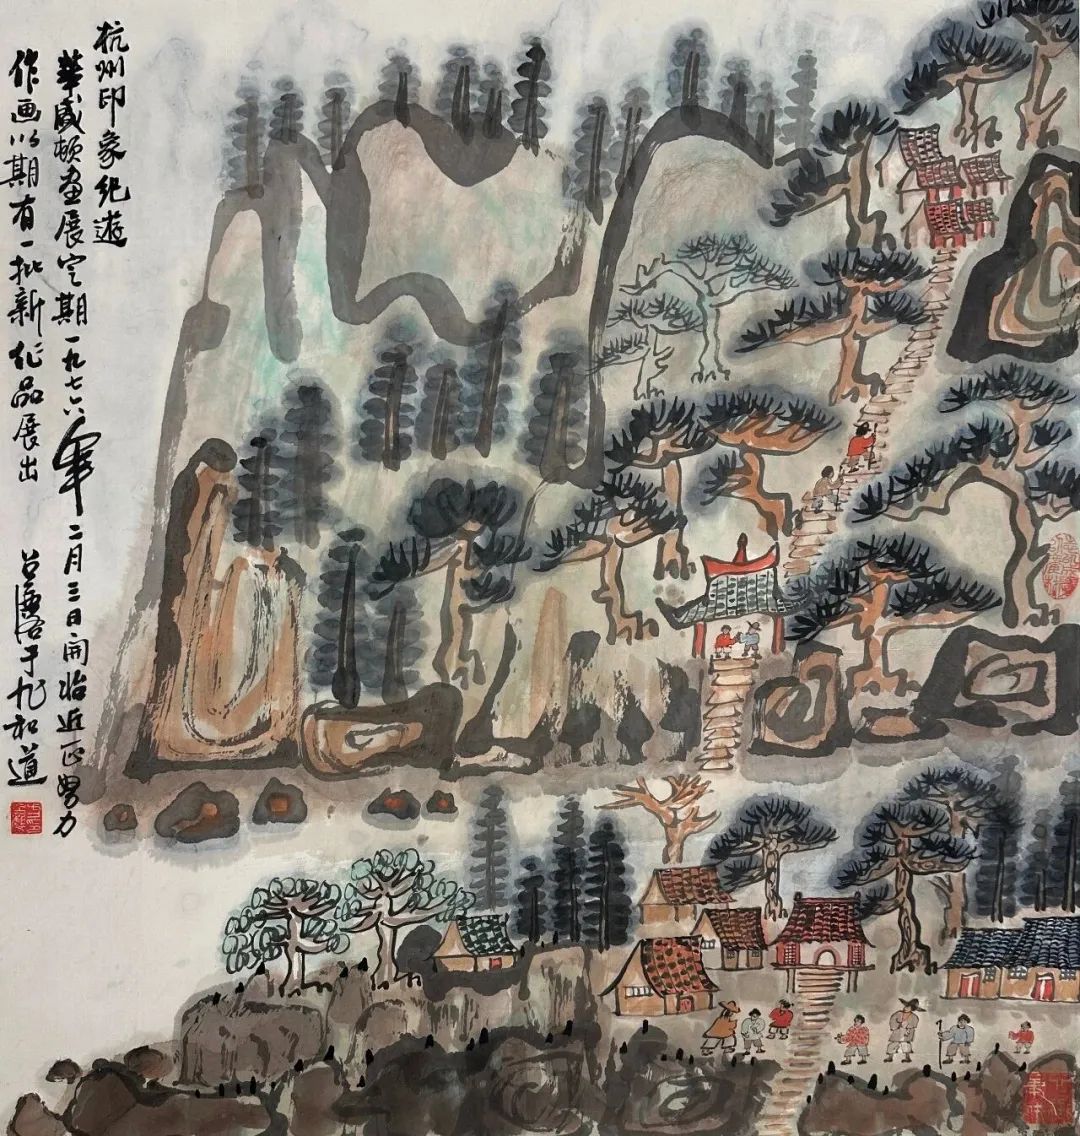 杭州印象紀遊
華盛頓畫展定期一九七六年二月三日開始近正努力
作画以期有一批新作品展出 于九和道